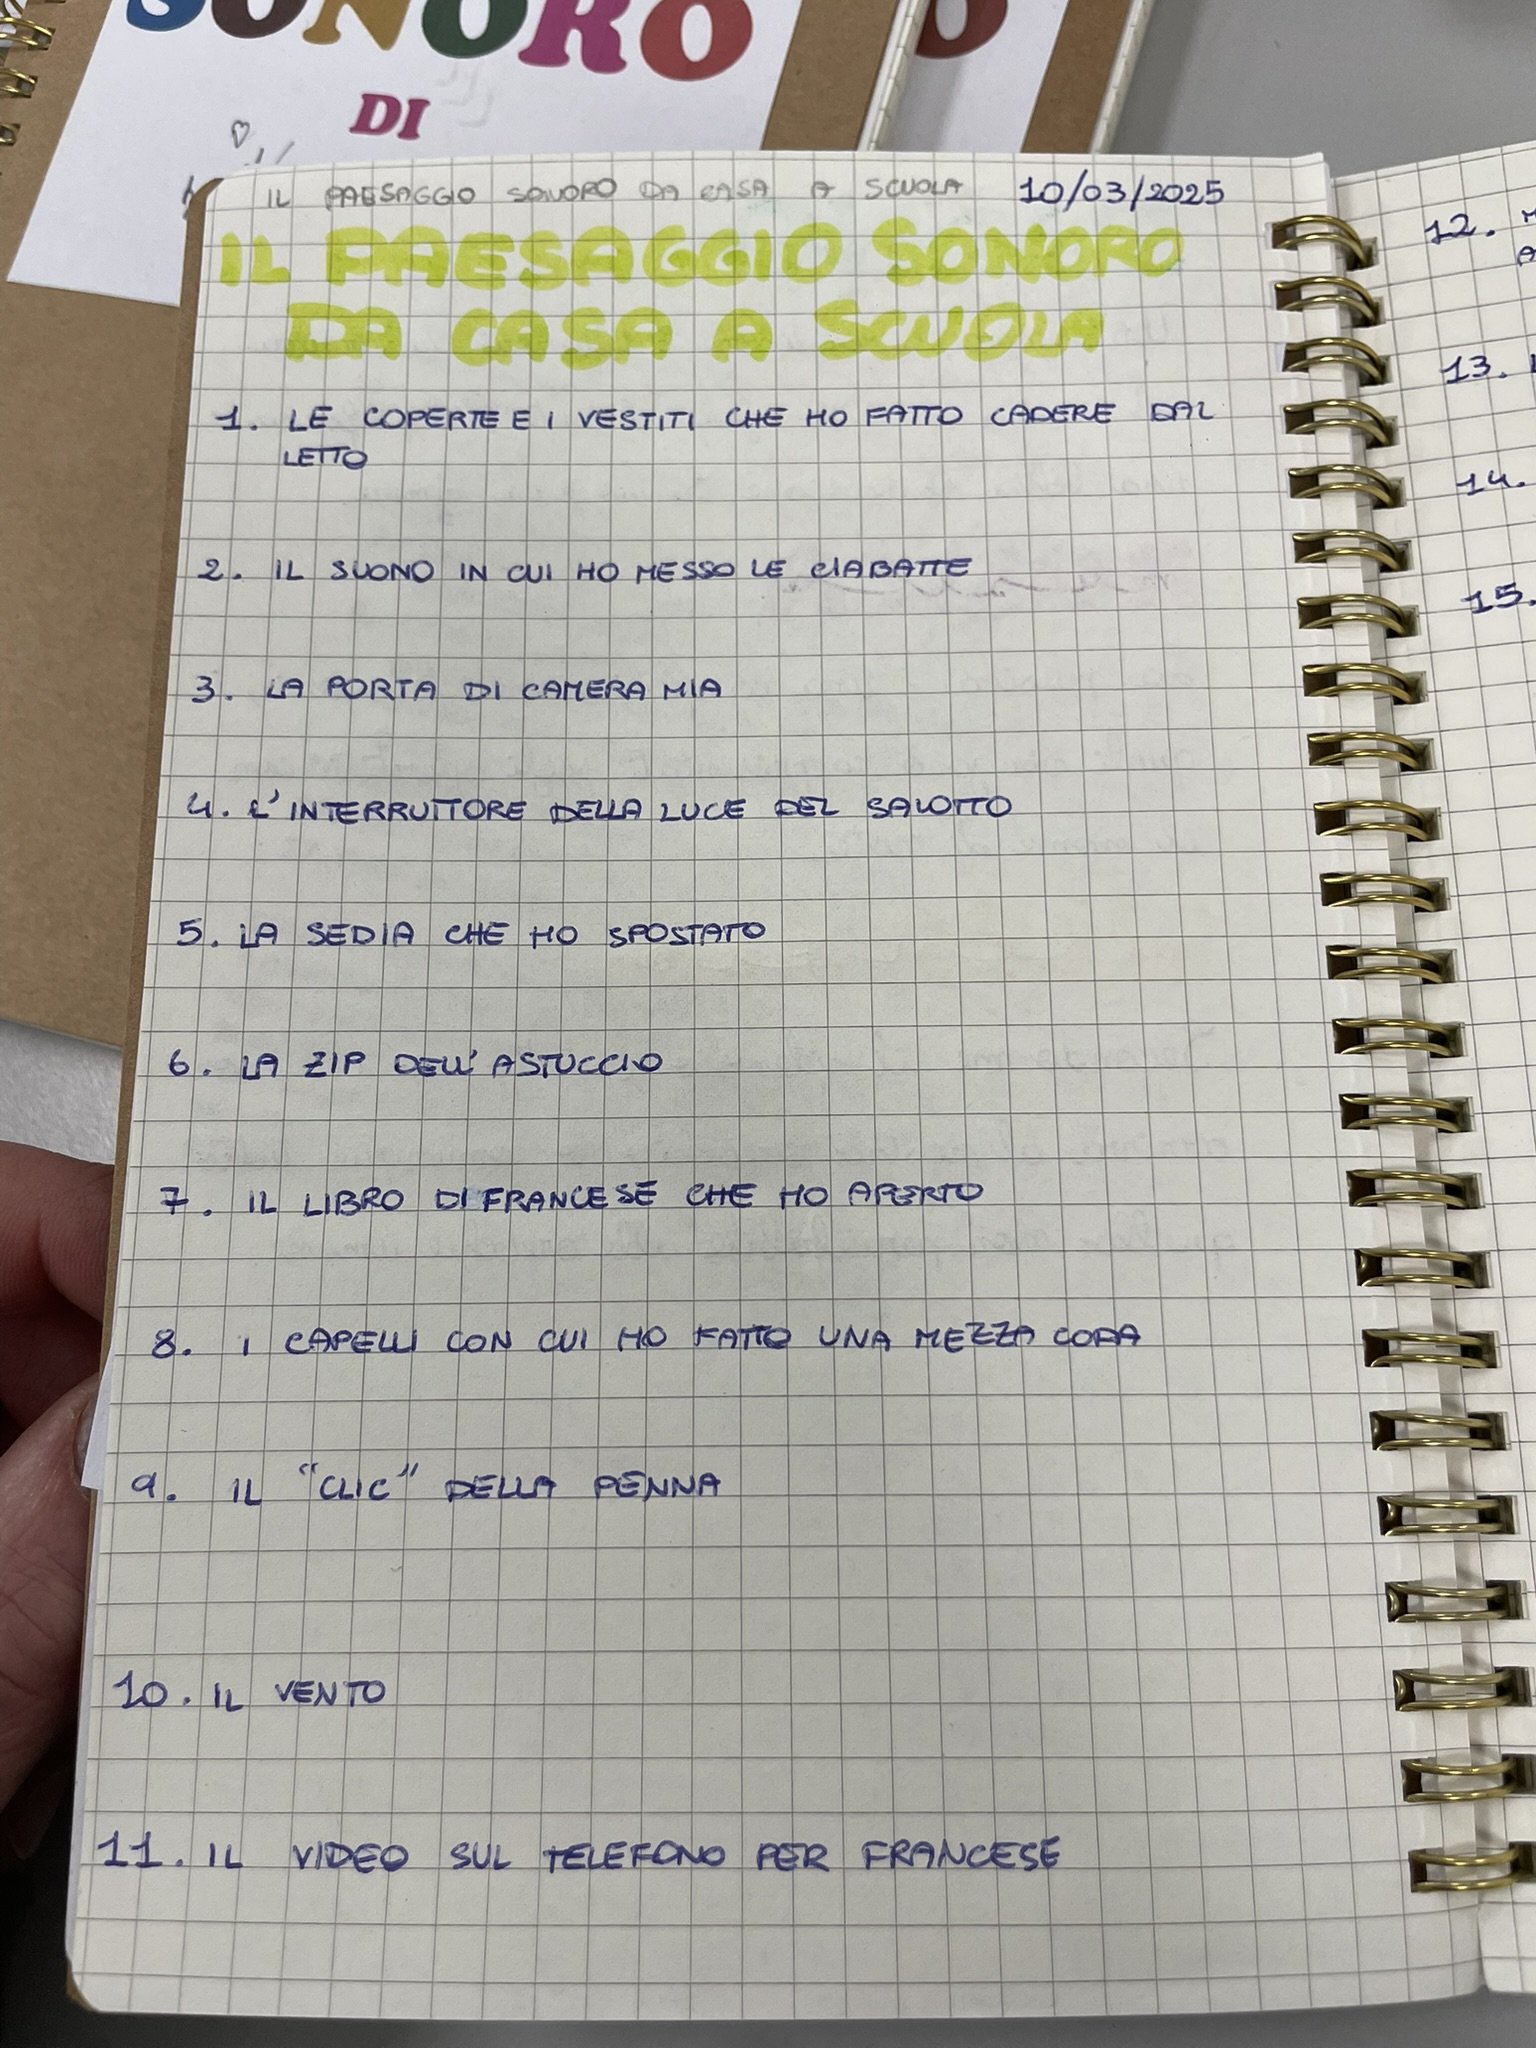 SONORO
DI
IL PAESAGGIO SONORO DA CASA A SCUOLA 10/03/2025
IL PAESAGGIO SONORO
DA CASA A SCUOLA
1. LE COPERTE E I VESTITI CHE HO FATTO CADERE DAL
LETTO
2. IL SUONO IN CUI HO MESSO LE CIABATTE
3. LA PORTA DI CAMERA MIA
4. L'INTERRUTTORE DELLA LUCE DEL SALOTTO
5. LA SEDIA CHE HO SPOSTATO
6. LA ZIP DELL'ASTUCCIO
7. IL LIBRO DI FRANCESE CHE HO APERTO
8. I CAPELLI CON CUI HO FATTO UNA MEZZA CODA
9. IL "CLIC" DELLA PENNA
10. IL VENTO
11. IL VIDEO SUL TELEFONO PER FRANCESE
12.
13.
14.
15.